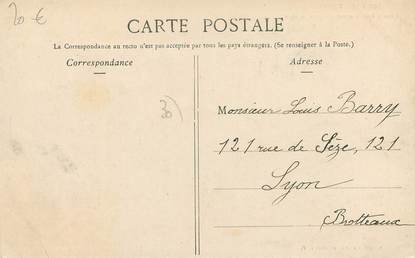 20 €
CARTE POSTALE
La Correspondance au recto n'est pas acceptée par tous les pays étrangers. (Se renseigner à la Poste.)
Correspondance
Adresse
30
Monsieur Louis Barry
121 rue de Sèze, 121
Lyon
Brotteaux